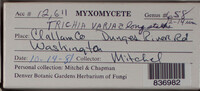 Acc. # 12,611 MYXOMYCETE Genus # 58
Species TRICHIA VARIA Long stalk
Place Clallam Co. Dunges River Rd
Washington
Date 10-14-81 Collector Mitchel
Personal collection: Mitchel & Chapman
Denver Botanic Gardens Herbarium of Fungi
836982